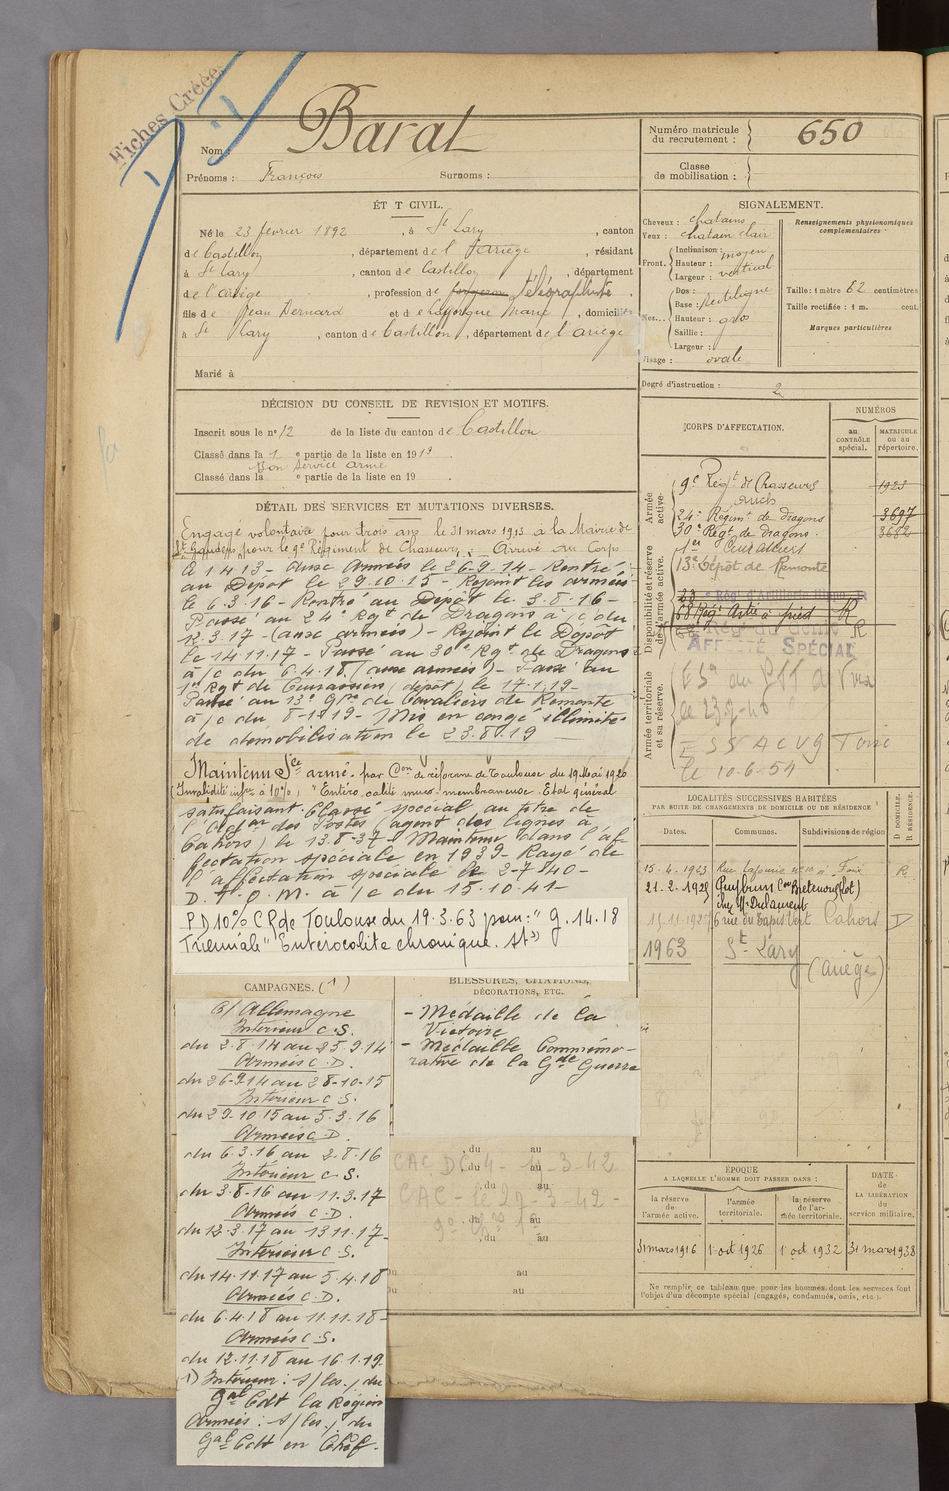 Fiches Créées
Nom : Barat
Prénoms : François Surnoms :
Numéro matricule du recrutement : 650
Classe de mobilisation :
ÉTAT CIVIL.
Né le 23 février 1892, à St Lary, canton
de Castillon, département de l'Ariège, résidant
à St Lary, canton de Castillon, département
de l'Ariège, profession de forgeron télégraphiste.
fils de Jean Bernard et de Laforgue Marie, domiciliés
à St Lary, canton de Castillon, département de l'Ariège
Marié à
DÉCISION DU CONSEIL DE REVISION ET MOTIFS.
Inscrit sous le n° 12 de la liste du canton de Castillon
Classé dans la 1e partie de la liste en 1913.
Bon service armé
Classé dans la e partie de la liste en 19 .
DÉTAIL DES SERVICES ET MUTATIONS DIVERSES.
Engagé volontaire pour trois ans le 31 mars 1913 à la Mairie de
St Gaudens pour le 9e Régiment de Chasseurs. Arrivé au Corps
à 1 4 13 - aux Armées le 26-9-14 - Rentré
au Dépôt le 29.10.15 - Rejoint les armées
le 6-3-16 - Rentré au Dépôt le 3-8-16 -
Passé au 24e Rgt de Dragons à/c du
12.3.17 - (aux armées) - Rejoint le Dépôt
le 14.11.17 - Passé au 30e Rgt de Dragons
à/c du 6.4.18 (aux armées) - Passé au
1er Rgt de Cuirassiers (dépôt) le 17.1.19 -
Passé au 13e Gpe de Cavaliers de Remonte
à/c du 8-1919 - Mis en congé illimité
de démobilisation le 23.8.19
Maintenu Sce armé - par Con de réforme de Toulouse du 19 Mai 1920
(Invalidité infre à 10%, "Entéro colite muco-membraneuse. Etat général
satisfaisant. Classé spécial au titre de
l'Affon des Postes (agent des lignes à
Cahors) le 13.8-37 - Maintenu dans l'af-
fectation spéciale en 1939 - Rayé de
l'affectation spéciale le 2-7-40 -
D. . O. M. à/c du 15-10-41 -
P.D 10% C R de Toulouse du 19.3.63 pour: "g. 14.18
Triennale "Entérocolite chronique.
CAMPAGNES. (1)
C/ Allemagne
Intérieur C.S.
du 2-8-14 au 25-9-14
Armées C.D.
du 26-9-14 au 28-10-15
Intérieur C.S.
du 29-10-15 au 5-3-16
Armées C.D.
du 6-3-16 au 2-8-16
Intérieur C.S.
du 3-8-16 au 11.3.17
Armées C.D.
du 12-3.17 au 13 11.17-
Intérieur C.S.
du 14.11.17 au 5-4-18
Armées C.D.
du 6-4-18 au 11-11-18-
Armées C.S.
du 12.11.18 au 16.1.19.
1) Intérieur : s/les . du
Gal Cdt la Région
Armées : s/les . du
Gal Cdt en Chef-
BLESSURES, CITATIONS,
DÉCORATIONS, ETC.
- Médaille de la
Victoire
- Médaille Commémo-
rative de la Gde Guerre
, du au
CAC DC4 - 11-3-42
CAC - le 27-3-42 -
SIGNALEMENT.
Cheveux : chatains
Yeux : chatain clair
Front. Inclinaison : moyen
Hauteur :
Largeur : vertical
Nez... Dos :
Base : rectiligne
Hauteur : gros
Saillie :
Largeur :
Visage : ovale
Renseignements physionomiques complémentaires :
Taille : 1 mètre 62 centimètres
Taille rectifiée : 1 m. cent.
Marques particulières
Degré d'instruction : 2
CORPS D'AFFECTATION.
NUMÉROS
au CONTRÔLE spécial.
MATRICULE OU AU répertoire.
Armée active.
9e Régt de Chasseurs 1923
Auch
24e Régimt de dragons 3697
30e Régt de dragons 3682
Disponibilité et réserve de l'armée active.
1er Cuirassiers
13e Dépôt de Remonte
23e Rég. d'Artillerie
68 Régt Artie à pied R
AFFECTÉ SPÉCIAL
Armée territoriale et sa réserve.
le 10-6-54
LOCALITÉS SUCCESSIVES HABITÉES
PAR SUITE DE CHANGEMENTS DE DOMICILE OU DE RÉSIDENCE
Dates. Communes. Subdivisions de région
D DOMICILE. R RÉSIDENCE.
15-4-1923 Rue Lafaurie n° 10 à Foix R
21-2-1925 Puybrun Con Bretenoux (Lot)
chez Mr Dulaurent
15-11-1927 6 rue du Tapis Vert Cahors D
1963 St Lary (Ariège)
ÉPOQUE
A LAQUELLE L'HOMME DOIT PASSER DANS :
la réserve de l'armée active.
l'armée territoriale.
la réserve de l'armée territoriale.
DATE de LA LIBÉRATION du service militaire.
31 mars 1916 1 oct 1926 1 oct 1932 31 mars 1938
Ne remplir ce tableau que pour les hommes dont les services font
l'objet d'un décompte spécial (engagés, condamnés, omis, etc.).